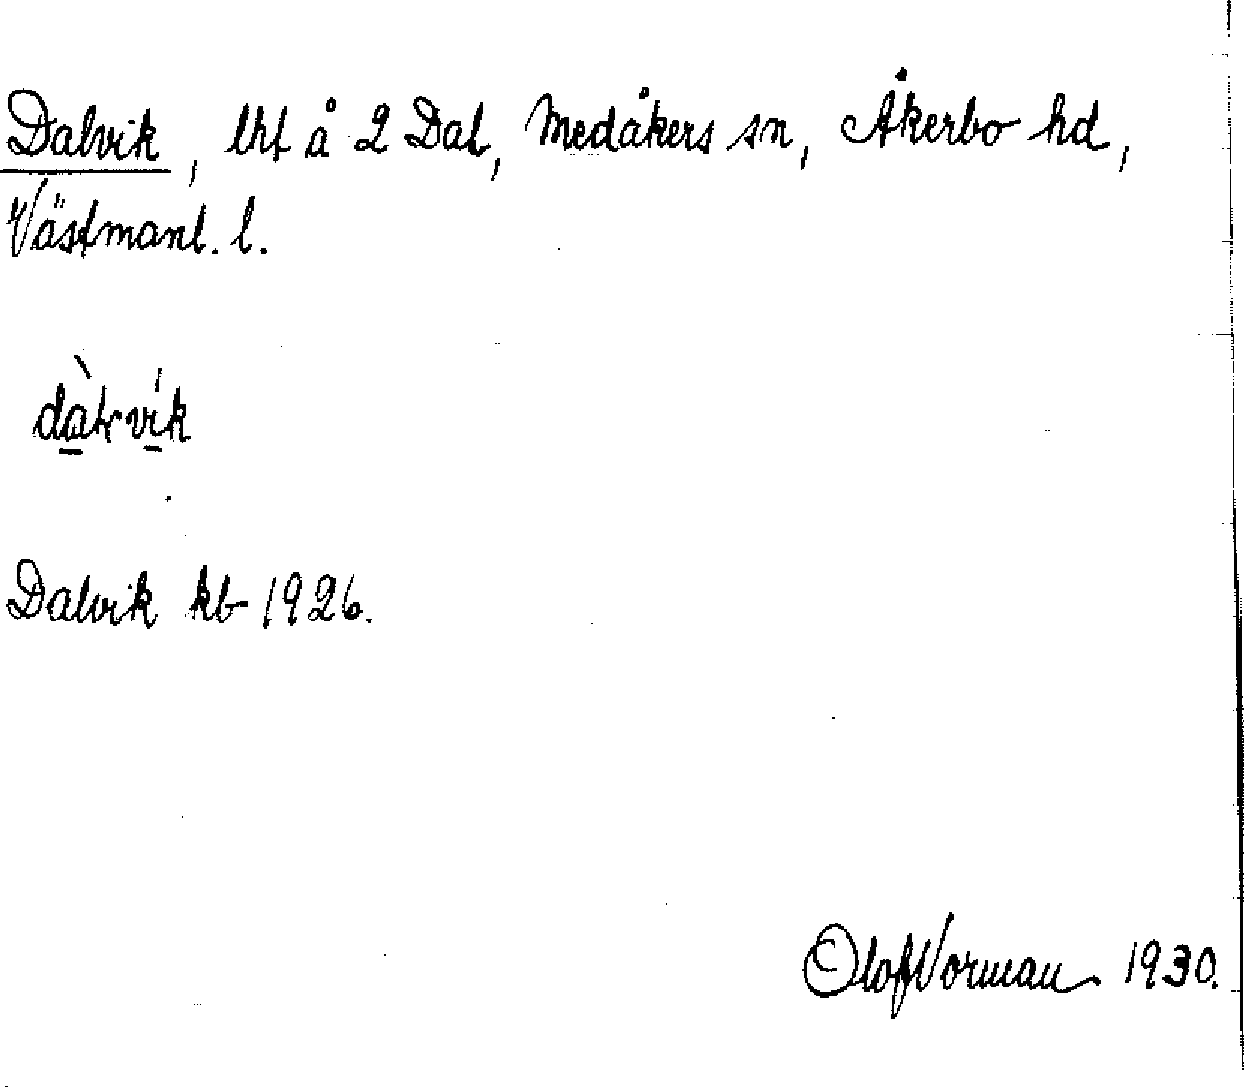 Dalvik, lht å 2 Dal, Medåkers sn, Åkerbo hd,
Västmanl. l.
dàlvík
Dalvik kb 1926.
Olof Norman 1930.